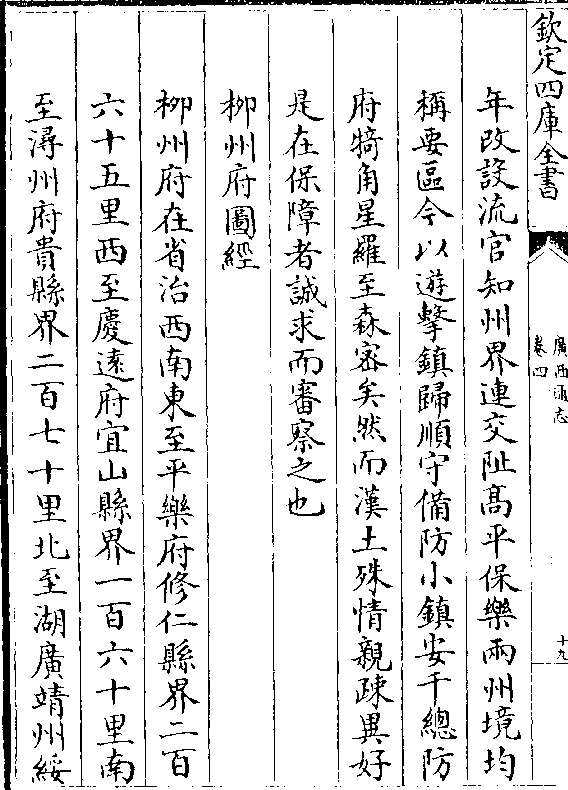 欽定四庫全書
廣西通志
卷四
十九
年改設流官知州界連交阯髙平保樂兩州境均
稱要區今以遊擊鎮歸順守備防小鎮安千總防
府犄角星羅至森密矣然而漢土殊情親疎異好
是在保障者誠求而審察之也
柳州府圖經
柳州府在省治西南東至平樂府修仁縣界二百
六十五里西至慶遠府宜山縣界一百六十里南
至潯州府貴縣界二百七十里北至湖廣靖州綏